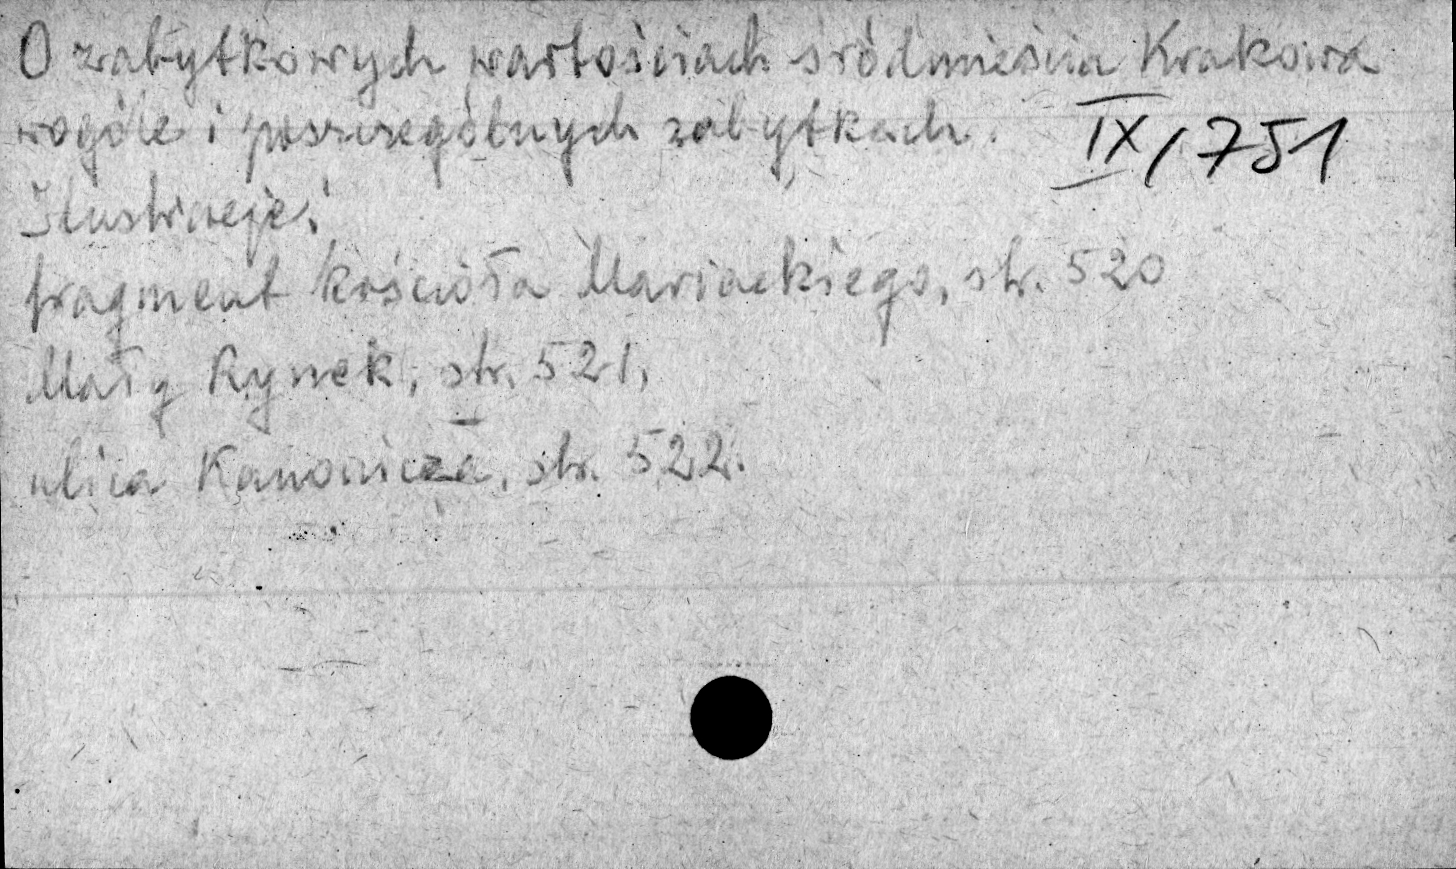 O zabytkowych wartościach śródmieścia Krakowa
wogóle i poszczególnych zabytkach. IX/751
Ilustracje:
fragment kościoła Mariackiego, str. 520
Mały Rynek, str. 521,
ulica Kanonicza, str. 522.